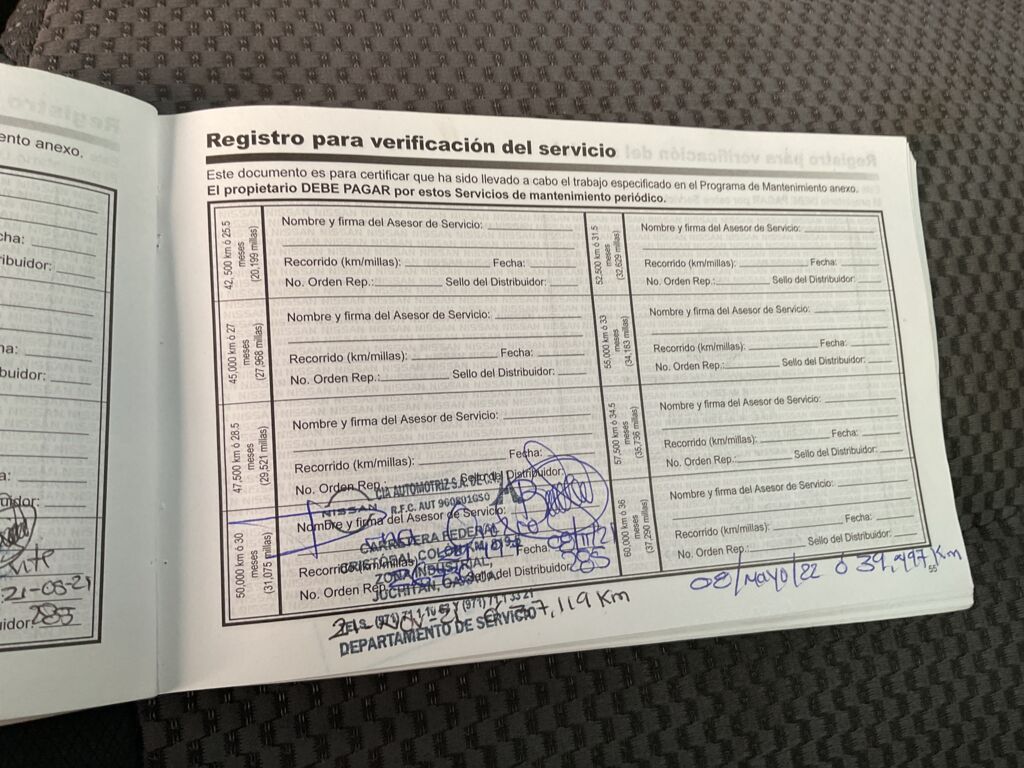 ento anexo.
cha:
ibuidor:
ha:
buidor:
a:
uidor:
21-05-21
idor: 285
Registro para verificación del servicio
Este documento es para certificar que ha sido llevado a cabo el trabajo especificado en el Programa de Mantenimiento anexo.
El propietario DEBE PAGAR por estos Servicios de mantenimiento periódico.
42,500 km ó 25.5
meses
(20,199 millas)
Nombre y firma del Asesor de Servicio:
Recorrido (km/millas): Fecha:
No. Orden Rep.: Sello del Distribuidor:
45,000 km ó 27
meses
(27,968 millas)
Nombre y firma del Asesor de Servicio:
Recorrido (km/millas): Fecha:
No. Orden Rep.: Sello del Distribuidor:
47,500 km ó 28.5
meses
(29,521 millas)
Nombre y firma del Asesor de Servicio:
Recorrido (km/millas): Fecha:
No. Orden Rep.: Sello del Distribuidor:
50,000 km ó 30
meses
(31,075 millas)
Nombre y firma del Asesor de Servicio:
Recorrido (km/millas): Fecha:
No. Orden Rep. Sello del Distribuidor: 285
NISSAN
CIA AUTOMOTRIZ S.A. DE C.V.
R.F.C. AUT 960801GSO
CARRETERA FEDERAL
CRISTOBAL COLON
ZONA INDUSTRIAL,
JUCHITAN, OAXACA
DEPARTAMENTO DE SERVICIO
,119 Km
52,500 km ó 31.5
meses
(32,629 millas)
Nombre y firma del Asesor de Servicio:
Recorrido (km/millas): Fecha:
No. Orden Rep.: Sello del Distribuidor:
55,000 km ó 33
meses
(34,183 millas)
Nombre y firma del Asesor de Servicio:
Recorrido (km/millas): Fecha:
No. Orden Rep.: Sello del Distribuidor:
57,500 km ó 34.5
meses
(35,736 millas)
Nombre y firma del Asesor de Servicio:
Recorrido (km/millas): Fecha:
No. Orden Rep.: Sello del Distribuidor:
60,000 km ó 36
meses
(37,290 millas)
Nombre y firma del Asesor de Servicio:
Recorrido (km/millas): Fecha:
No. Orden Rep.: Sello del Distribuidor:
08/Mayo/22 ó 39,997 Km
55